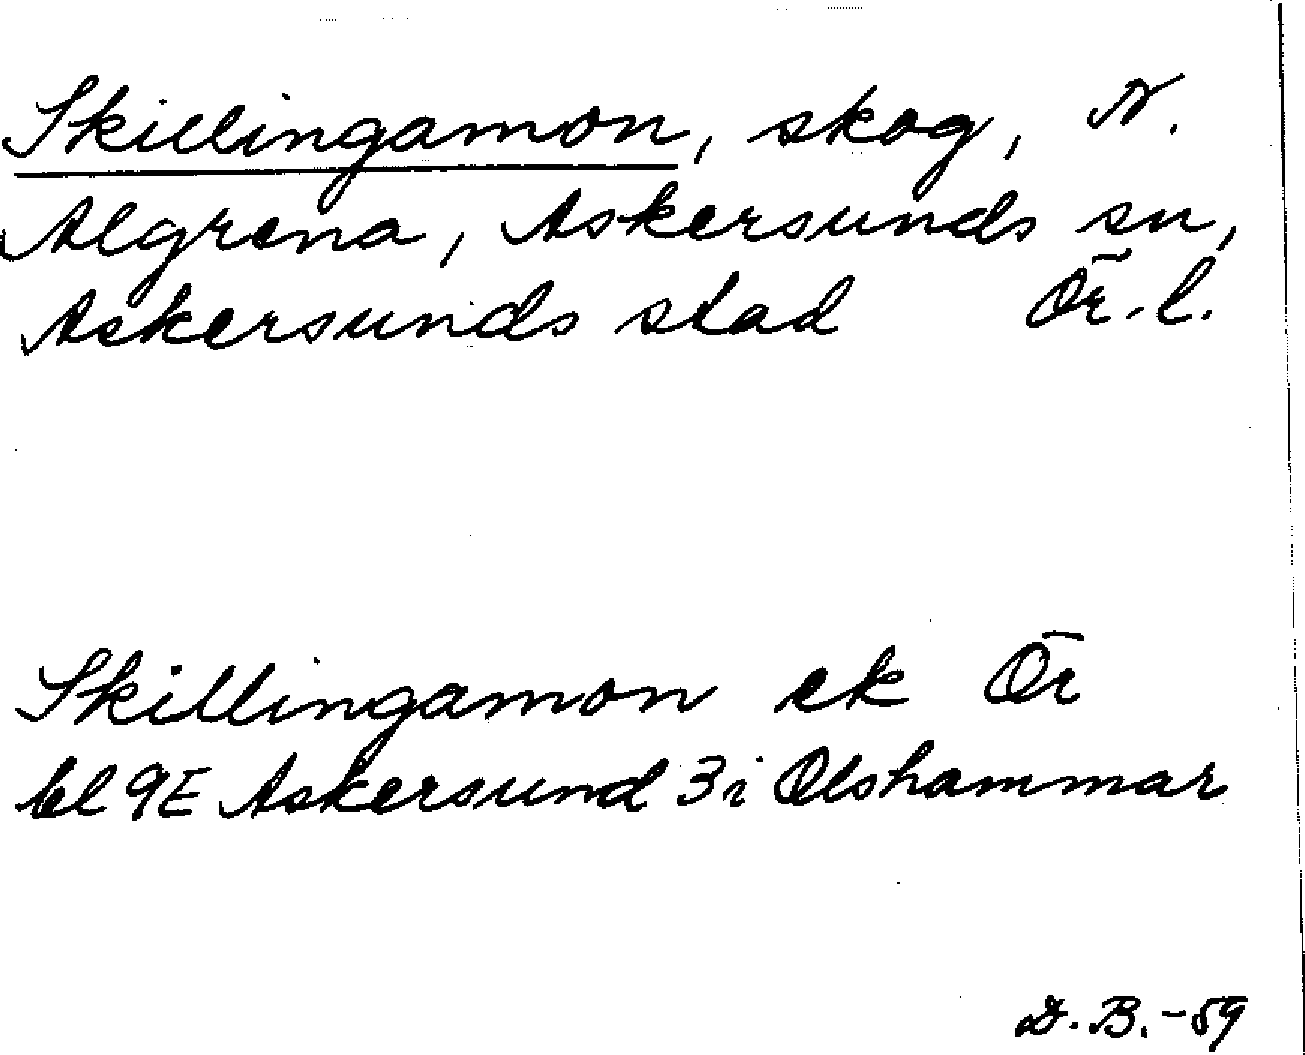 Skillingamon, skog, N.
Algrena, Askersunds sn,
Askersunds stad Ör. l.
Skillingamon ek Ör
bl 9E Askersund 3i Olshammar
D.B. -59